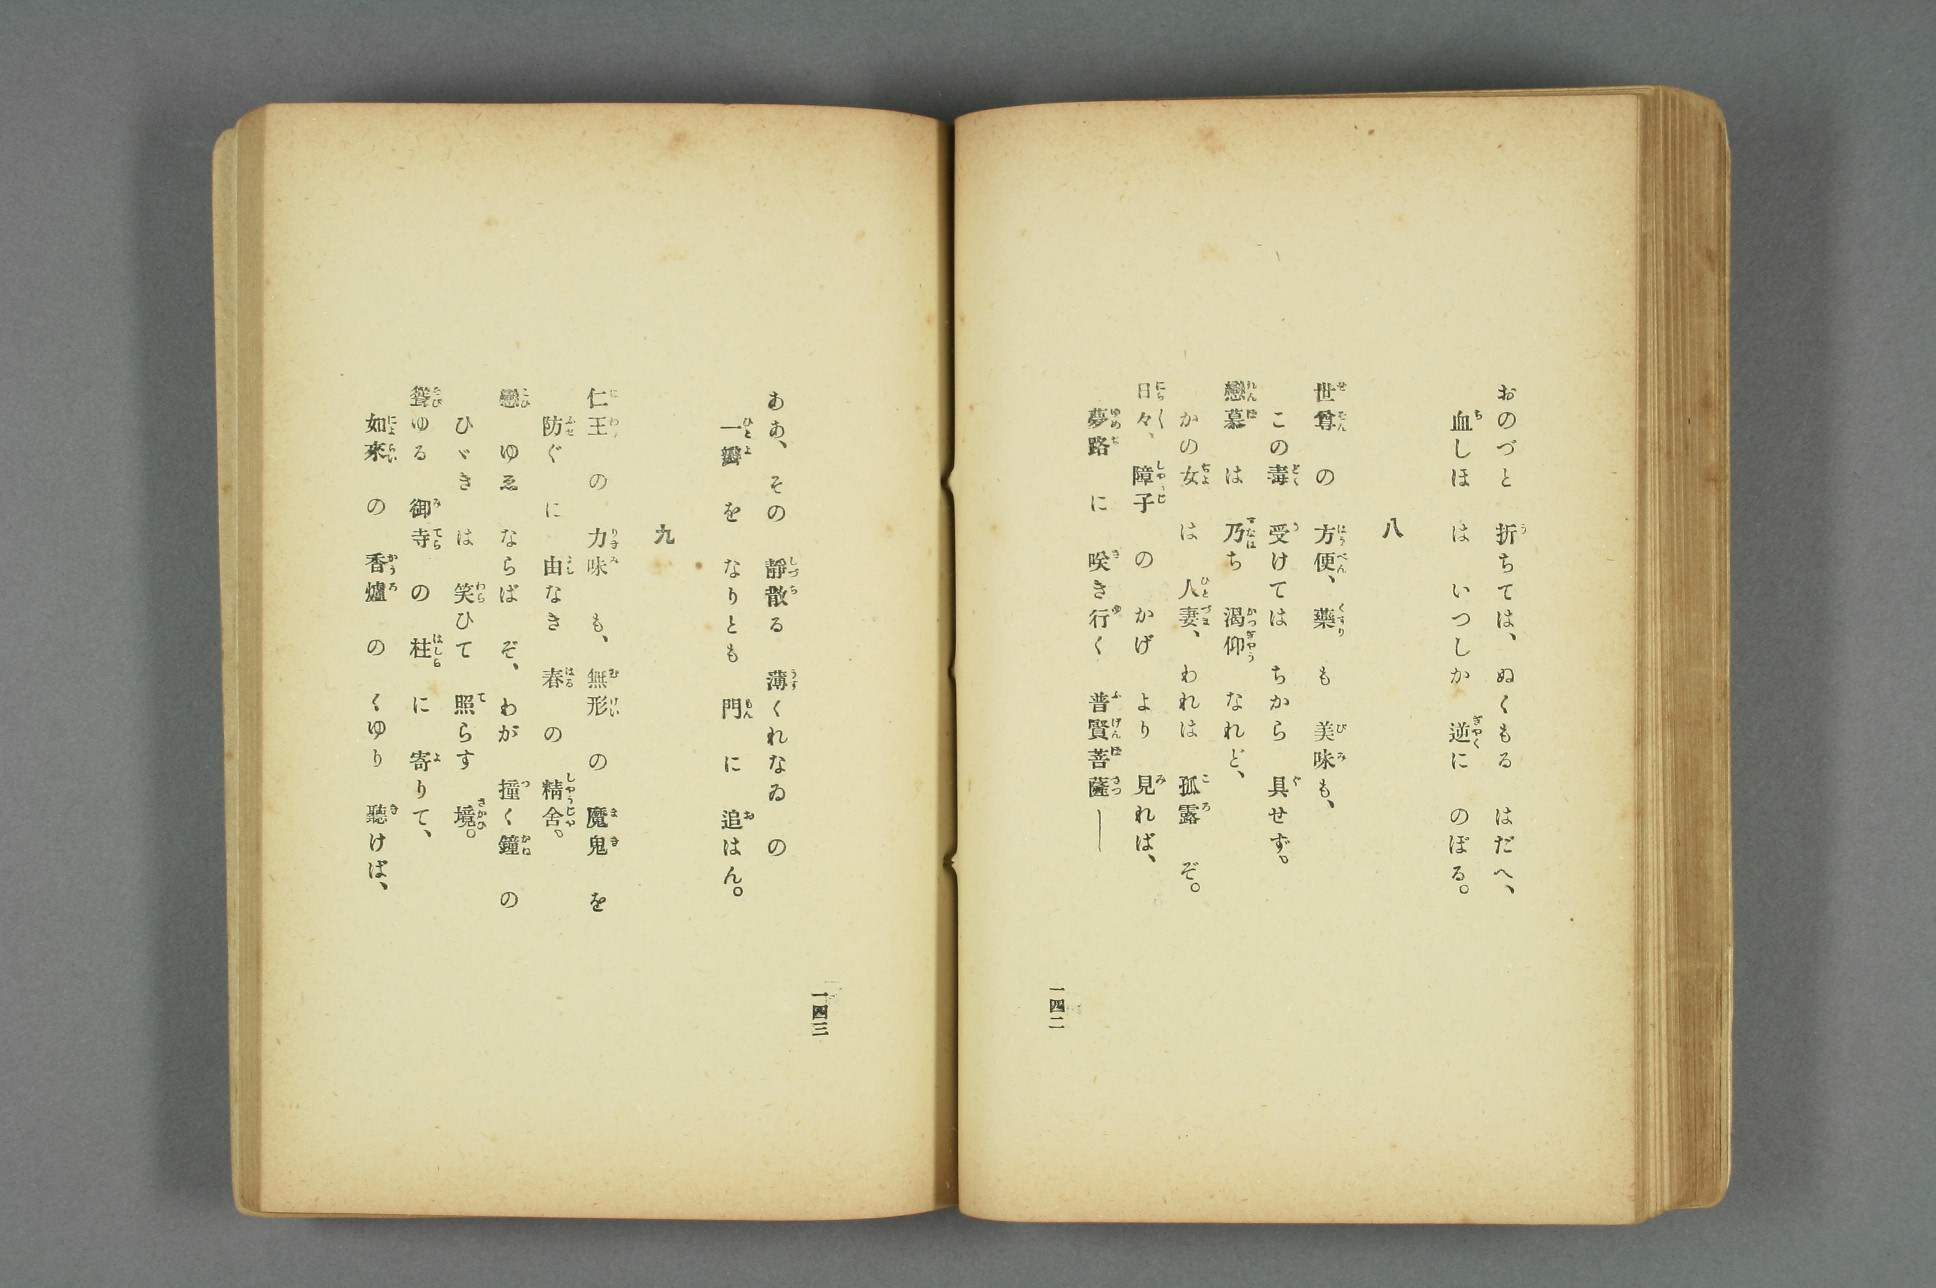 おのづと 折ちては、ぬくもる はだへ、
血しほ は いつしか 逆に のぼる。
八
世尊 の 方便、藥 も 美味も、
この毒 受けては ちから 具せず。
戀慕 は 乃ち 渴仰 なれど、
かの女 は 人妻、われは 孤露 ぞ。
日々、障子 のかげ より 見れば、
夢路 に 咲き行く 普賢菩薩――
一四二
ああ、その 靜散る 薄くれなゐ の
一瓣 を なりとも 門 に 追はん。
九
仁王 の 力味 も、無形 の 魔鬼 を
防ぐ に 由なき 春 の 精舍。
戀 ゆゑ ならば ぞ、わが 撞く鐘 の
ひゞき は 笑ひて 照らす 境。
聳ゆる 御寺 の 柱 に 寄りて、
如來 の 香爐 の くゆり 聽けば、
一四三